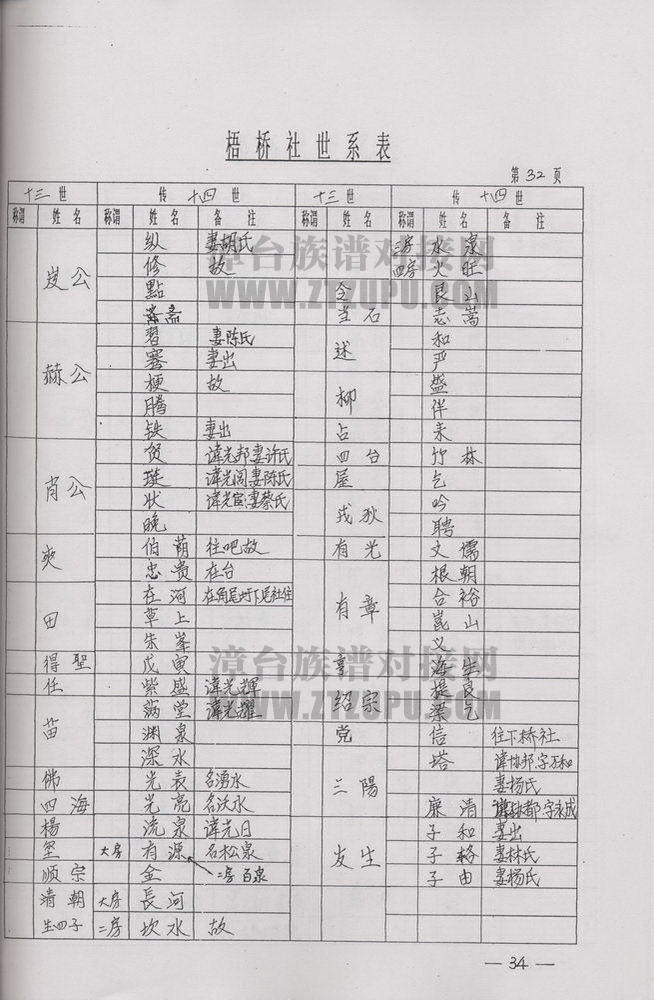 梧桥社世系表
第32页
十三世 传十四世 十三世 传十四世
称谓 姓名 称谓 姓名 备注 称谓 姓名 称谓 姓名 备注
纵 妻胡氏 三房 水泉
岌公 修 故 四房 火旺
點 全 艮山
斋 当石 志嵩
習 妻陈氏 述 和
赫公 塞 妻出 严
梗 故 柳 盛
腾 伴
铁 妻出 占 来
肖公 贷 諱光邦妻许氏 四台 竹林
璇 諱光阁妻陈氏 屋 乞
状 諱光宾妻蔡氏 戎狄 吟
晚 聘
爽 伯荫 往吧故 有光 文儒
忠贵 在台 根朝
田 在河 在角尾圩下尾社住 有章 合裕
草上 崑山
朱峯 义
得聖 戊寅 享 海生
任 紫盛 諱光輝 绍宗 提良
苗 满堂 諱光耀 梁乞
渊泉 党 信 往下桥社
深水 三陽 塔 諱协邦,字万和
佛 光表 名湧水 妻杨氏
四海 光亮 名沃水 廉清 字永成
楊 流泉 諱光日 发生 子和 妻出
大房 有源 名松泉 子格 妻林氏
順宗 金 二房 百泉 子由 妻杨氏
清朝 大房 長河
生四子 二房 坎水 故
— 34 —
漳台族谱对接网
WWW.ZTZUPU.COM
漳台族谱对接网
WWW.ZTZUPU.COM